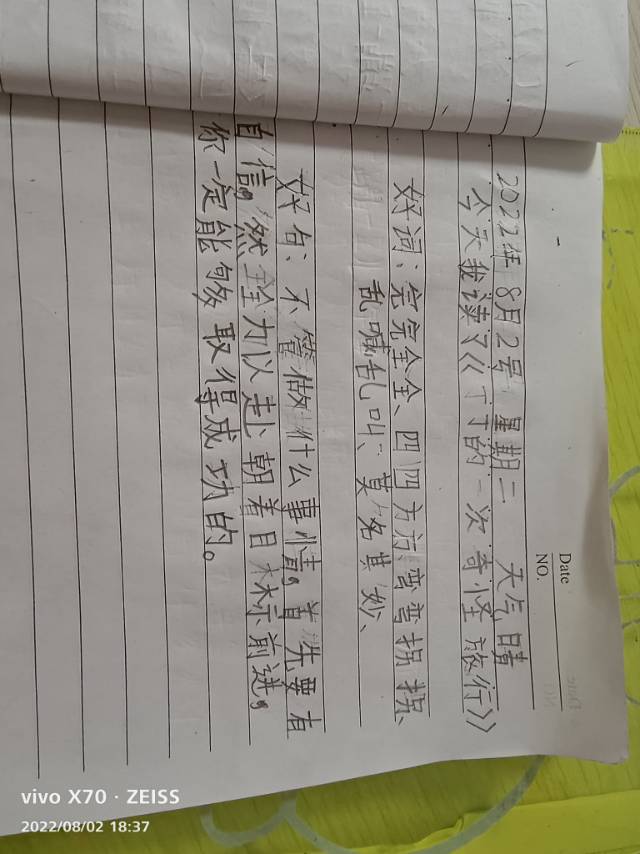 Date
NO.
2022年 8月2号 星期二 天气晴
今天我读了《丁丁的一次奇怪旅行》
好词：完完全全、四四方方、弯弯拐拐、
乱喊乱叫、莫名其妙、
好句：不管做什么事情，首先要有
自信，然全力以赴朝着目标前进，
你一定能够取得成功的。
vivo X70 · ZEISS
2022/08/02 18:37